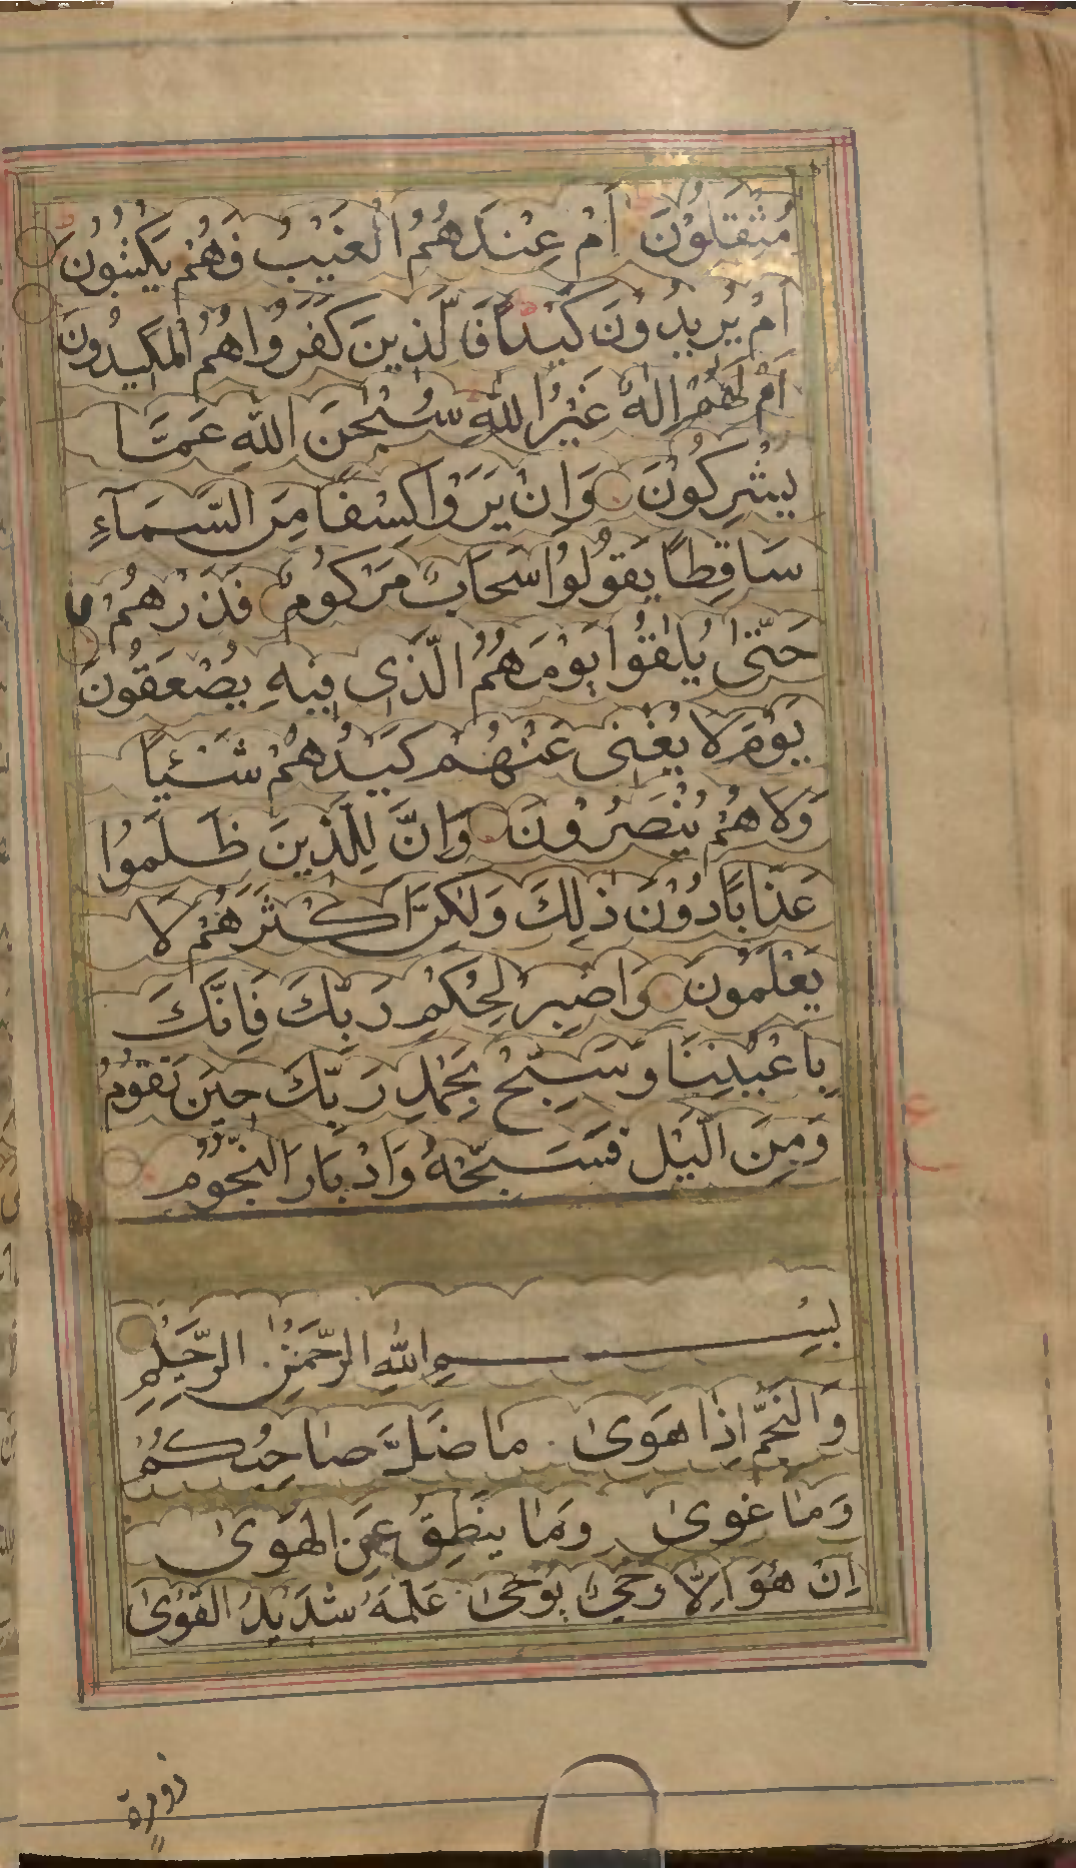 مُثْقَلُوْنَ اَمْ عِنْدَهُمُ الْغَيْبُ فَهُمْ يَكْتُبُوْنَ
اَمْ يُرِيدُوْنَ كَيْدًا فَالَّذِينَ كَفَرُوا هُمُ الْمَكِيدُونَ
اَمْ لَهُمْ اِلٰهٌ غَيْرُ اللّٰهِ سُبْحٰنَ اللّٰهِ عَمَّا
يُشْرِكُوْنَ وَاِنْ يَرَوْا كِسْفًا مِنَ السَّمَآءِ
سَاقِطًا يَقُولُوْا سَحَابٌ مَرْكُومٌ فَذَرْهُمْ
حَتّٰى يُلٰقُوْا يَوْمَهُمُ الَّذِى فِيهِ يُصْعَقُونَ
يَوْمَ لَا يُغْنِى عَنْهُمْ كَيْدُهُمْ شَيْئًا
وَلَا هُمْ يُنْصَرُوْنَ وَاِنَّ لِلَّذِينَ ظَلَمُوْا
عَذَابًا دُوْنَ ذٰلِكَ وَلٰكِنَّ اَكْثَرَهُمْ لَا
يَعْلَمُوْنَ وَاصْبِرْ لِحُكْمِ رَبِّكَ فَاِنَّكَ
بِاَعْيُنِنَا وَسَبِّحْ بِحَمْدِ رَبِّكَ حِينَ تَقُوْمُ
وَمِنَ الَّيْلِ فَسَبِّحْهُ وَاِدْبَارَ النُّجُوْمِ
بِسْمِ اللّٰهِ الرَّحْمٰنِ الرَّحِيْمِ
وَالنَّجْمِ اِذَا هَوٰى مَا ضَلَّ صَاحِبُكُمْ
وَمَا غَوٰى وَمَا يَنْطِقُ عَنِ الْهَوٰى
اِنْ هُوَ اِلَّا وَحْىٌ يُوْحٰى عَلَّمَهُ شَدِيْدُ الْقُوٰى